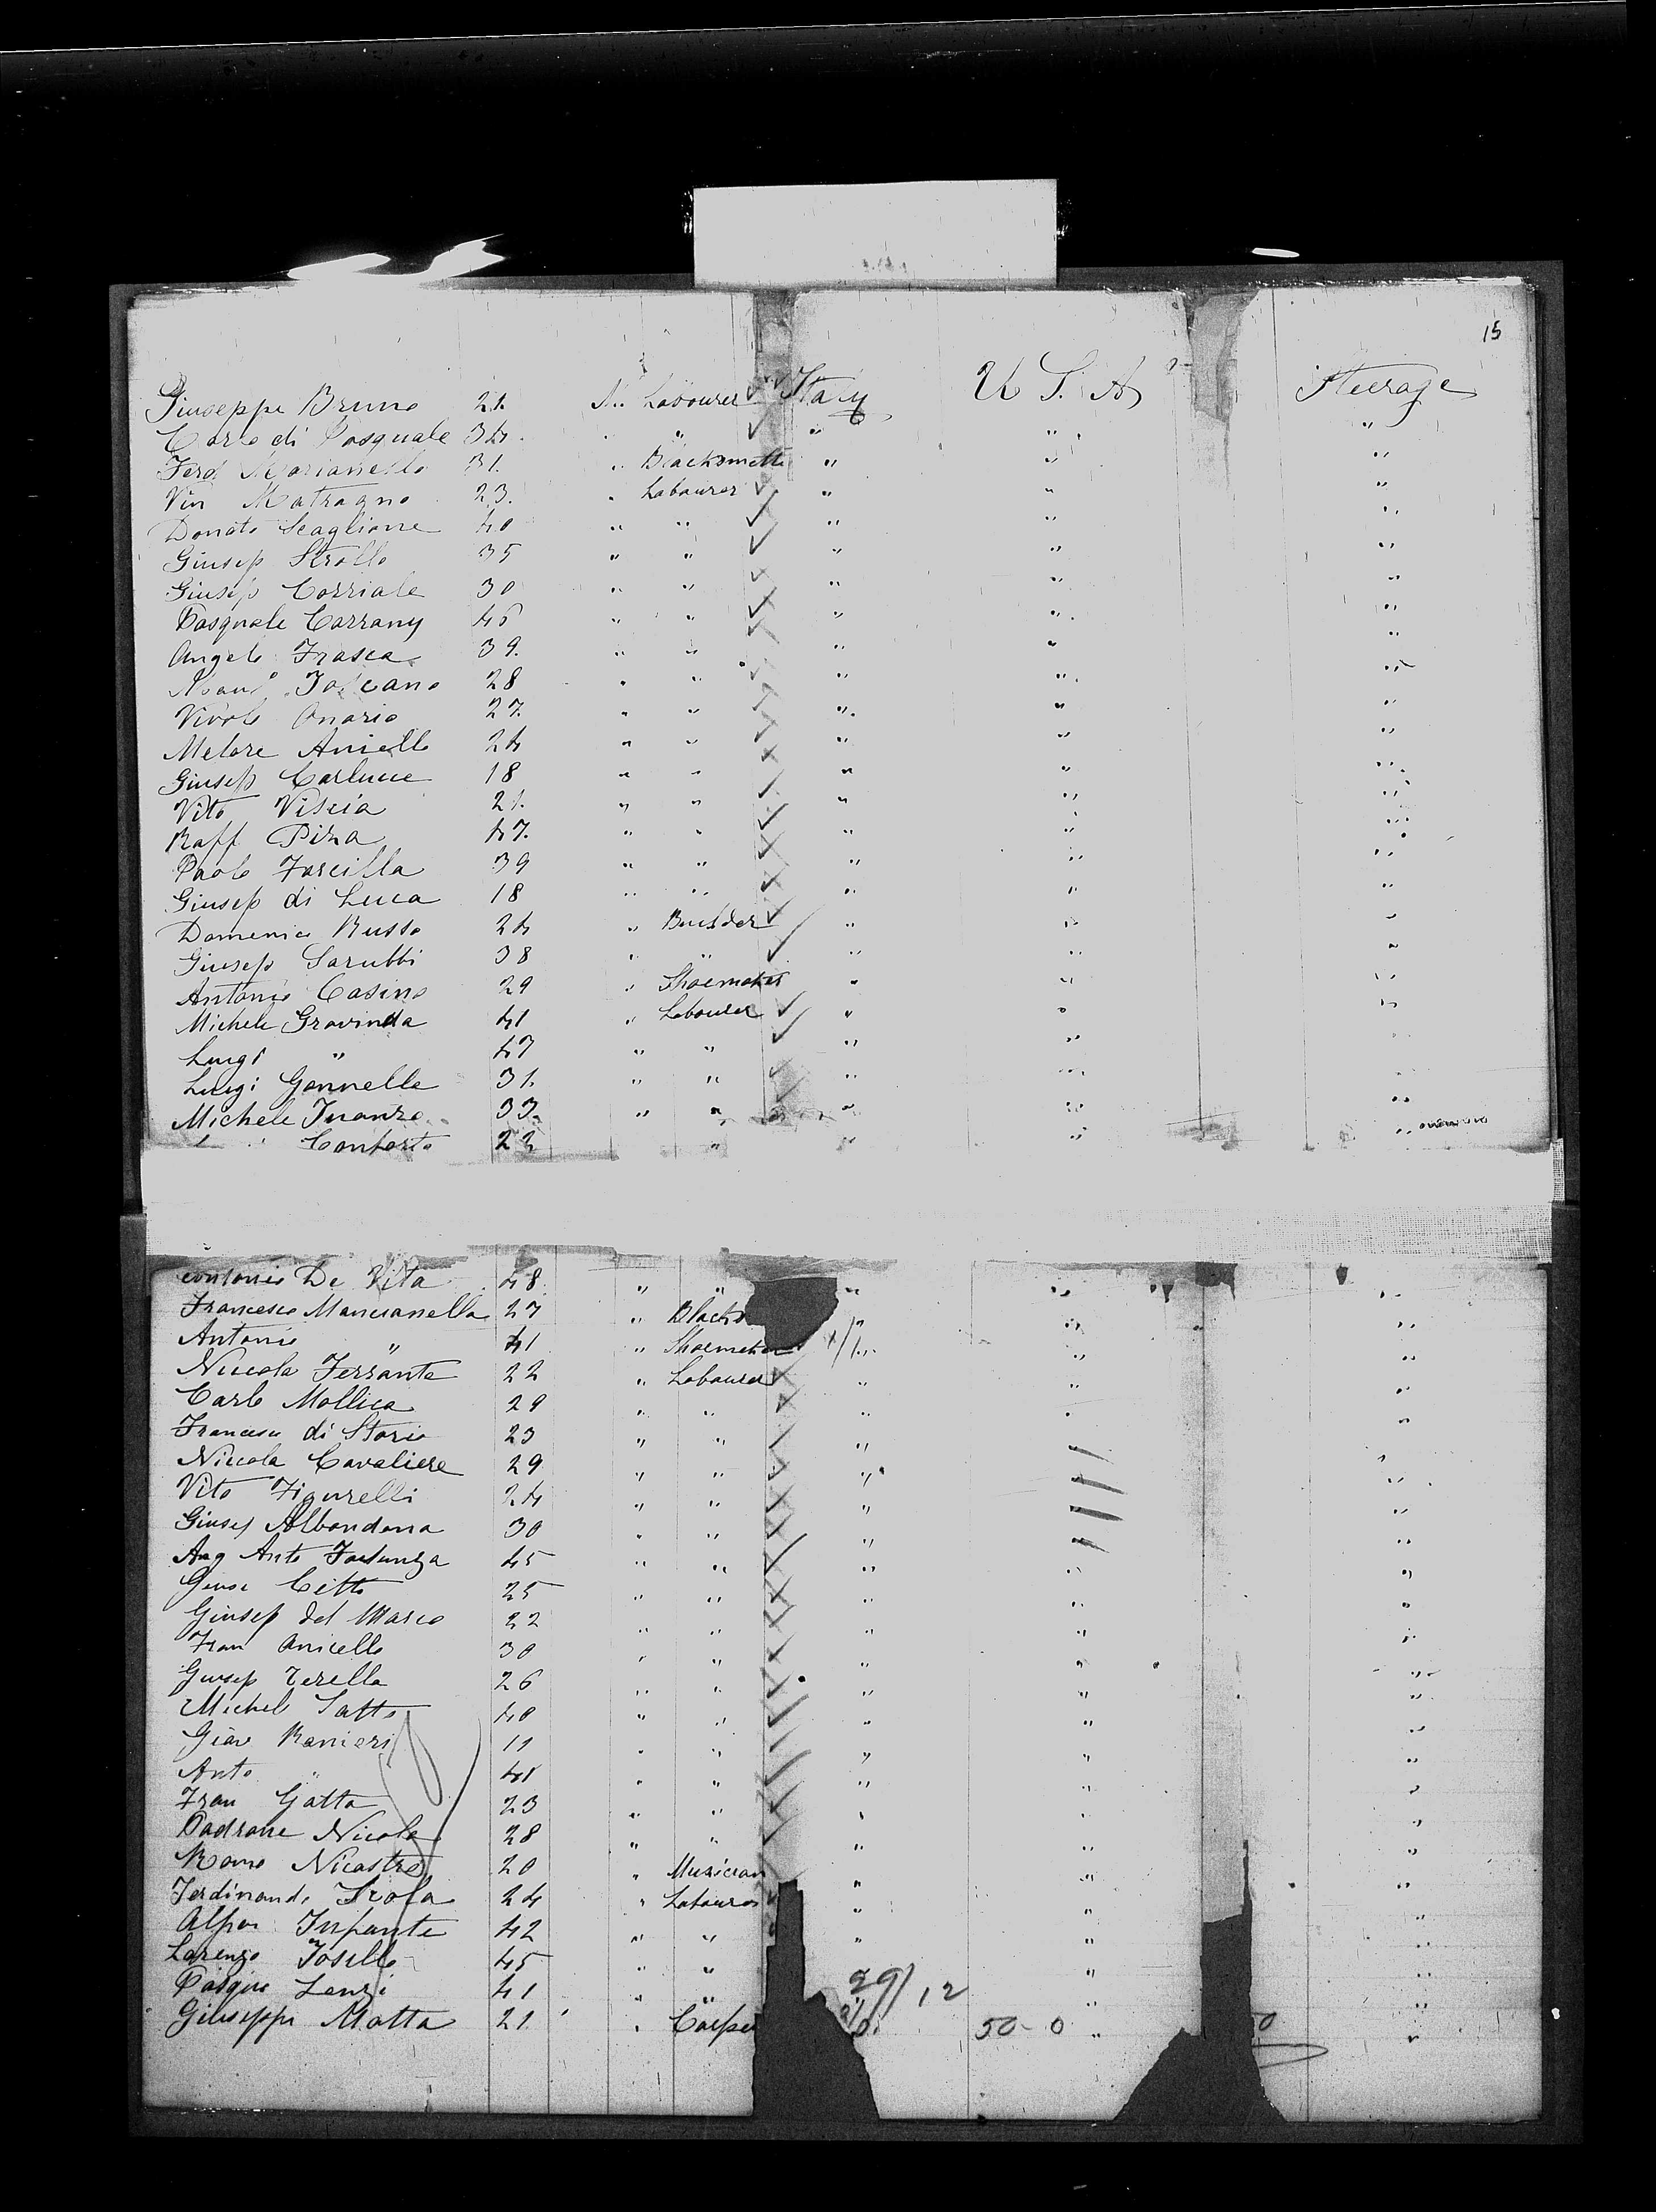 15
Giuseppe Bruno 21. M. Labourer Italy U S. A Steerage
Carlo di Pasquale 34. " " " " "
Ferd 31. " Blacksmith " " "
Vin Matragno 23. " Labourer " " "
Donato Scaglione 40 " " " " "
Giusep Strollo 35 " " " " "
Giusep Corriale 30 " " " " "
Pasquale Carrany 46 " " " " "
Angelo Frasca 39. " " " " "
Toscano 28 " " " " "
Vivolo Onorio 27. " " " " "
Melore Aniello 24 " " " " "
Giusep Carlucce 18 " " " " "
Vito Viscia 21. " " " " "
Raff Piza 47. " " " " "
Paolo Forcilla 39 " " " " "
Giusep di Luca 18 " " " " "
Domenico Russo 24 " Builder " " "
Giusep Sarubbi 38 " " " " "
Antonio Casino 29 " Shoemaker " " "
Michele Gravinda 41 " Labourer " " "
Luigi " 47 " " " " "
Luigi Gonnella 31. " " " " "
Michele 33. " " " " "
Conforto " " " "
De Vita 48 " " " " "
Francesco Mancianella 27 " Blacks " " "
Antonio " 41 " Shoemaker " " "
Niccola Ferrante 22 " Labourer " " "
Carlo Mollica 29 " " " " "
Francesco di Storio 23 " " " " "
Niccola Cavaliere 29 " " " " "
Vito Figurelli 24 " " " " "
Giusep Albandona 30 " " " " "
Ang Anto Fortunza 45 " " " " "
Gius Citto 25 " " " " "
Giusep del Marco 22 " " " " "
Fran Anicello 30 " " " " "
Giusep Terella 26 " " " " "
Michel Satto 40 " " " " "
Giov Ranieri 11 " " " " "
Anto " 41 " " " " "
Fran Gatta 23 " " " " "
Padrone Nicola 28 " " " " "
Romo Nicastro 20 " Musician " "
Ferdinando Frola 24 " Labourer " " "
Alfon Infante 42 " " " " "
Lorenzo Tosello 45 " " " "
Pasqua Lenzi 41 " " 29/12 " "
Giuseppe Motta 21. " Carpe 50-0 " 0 "